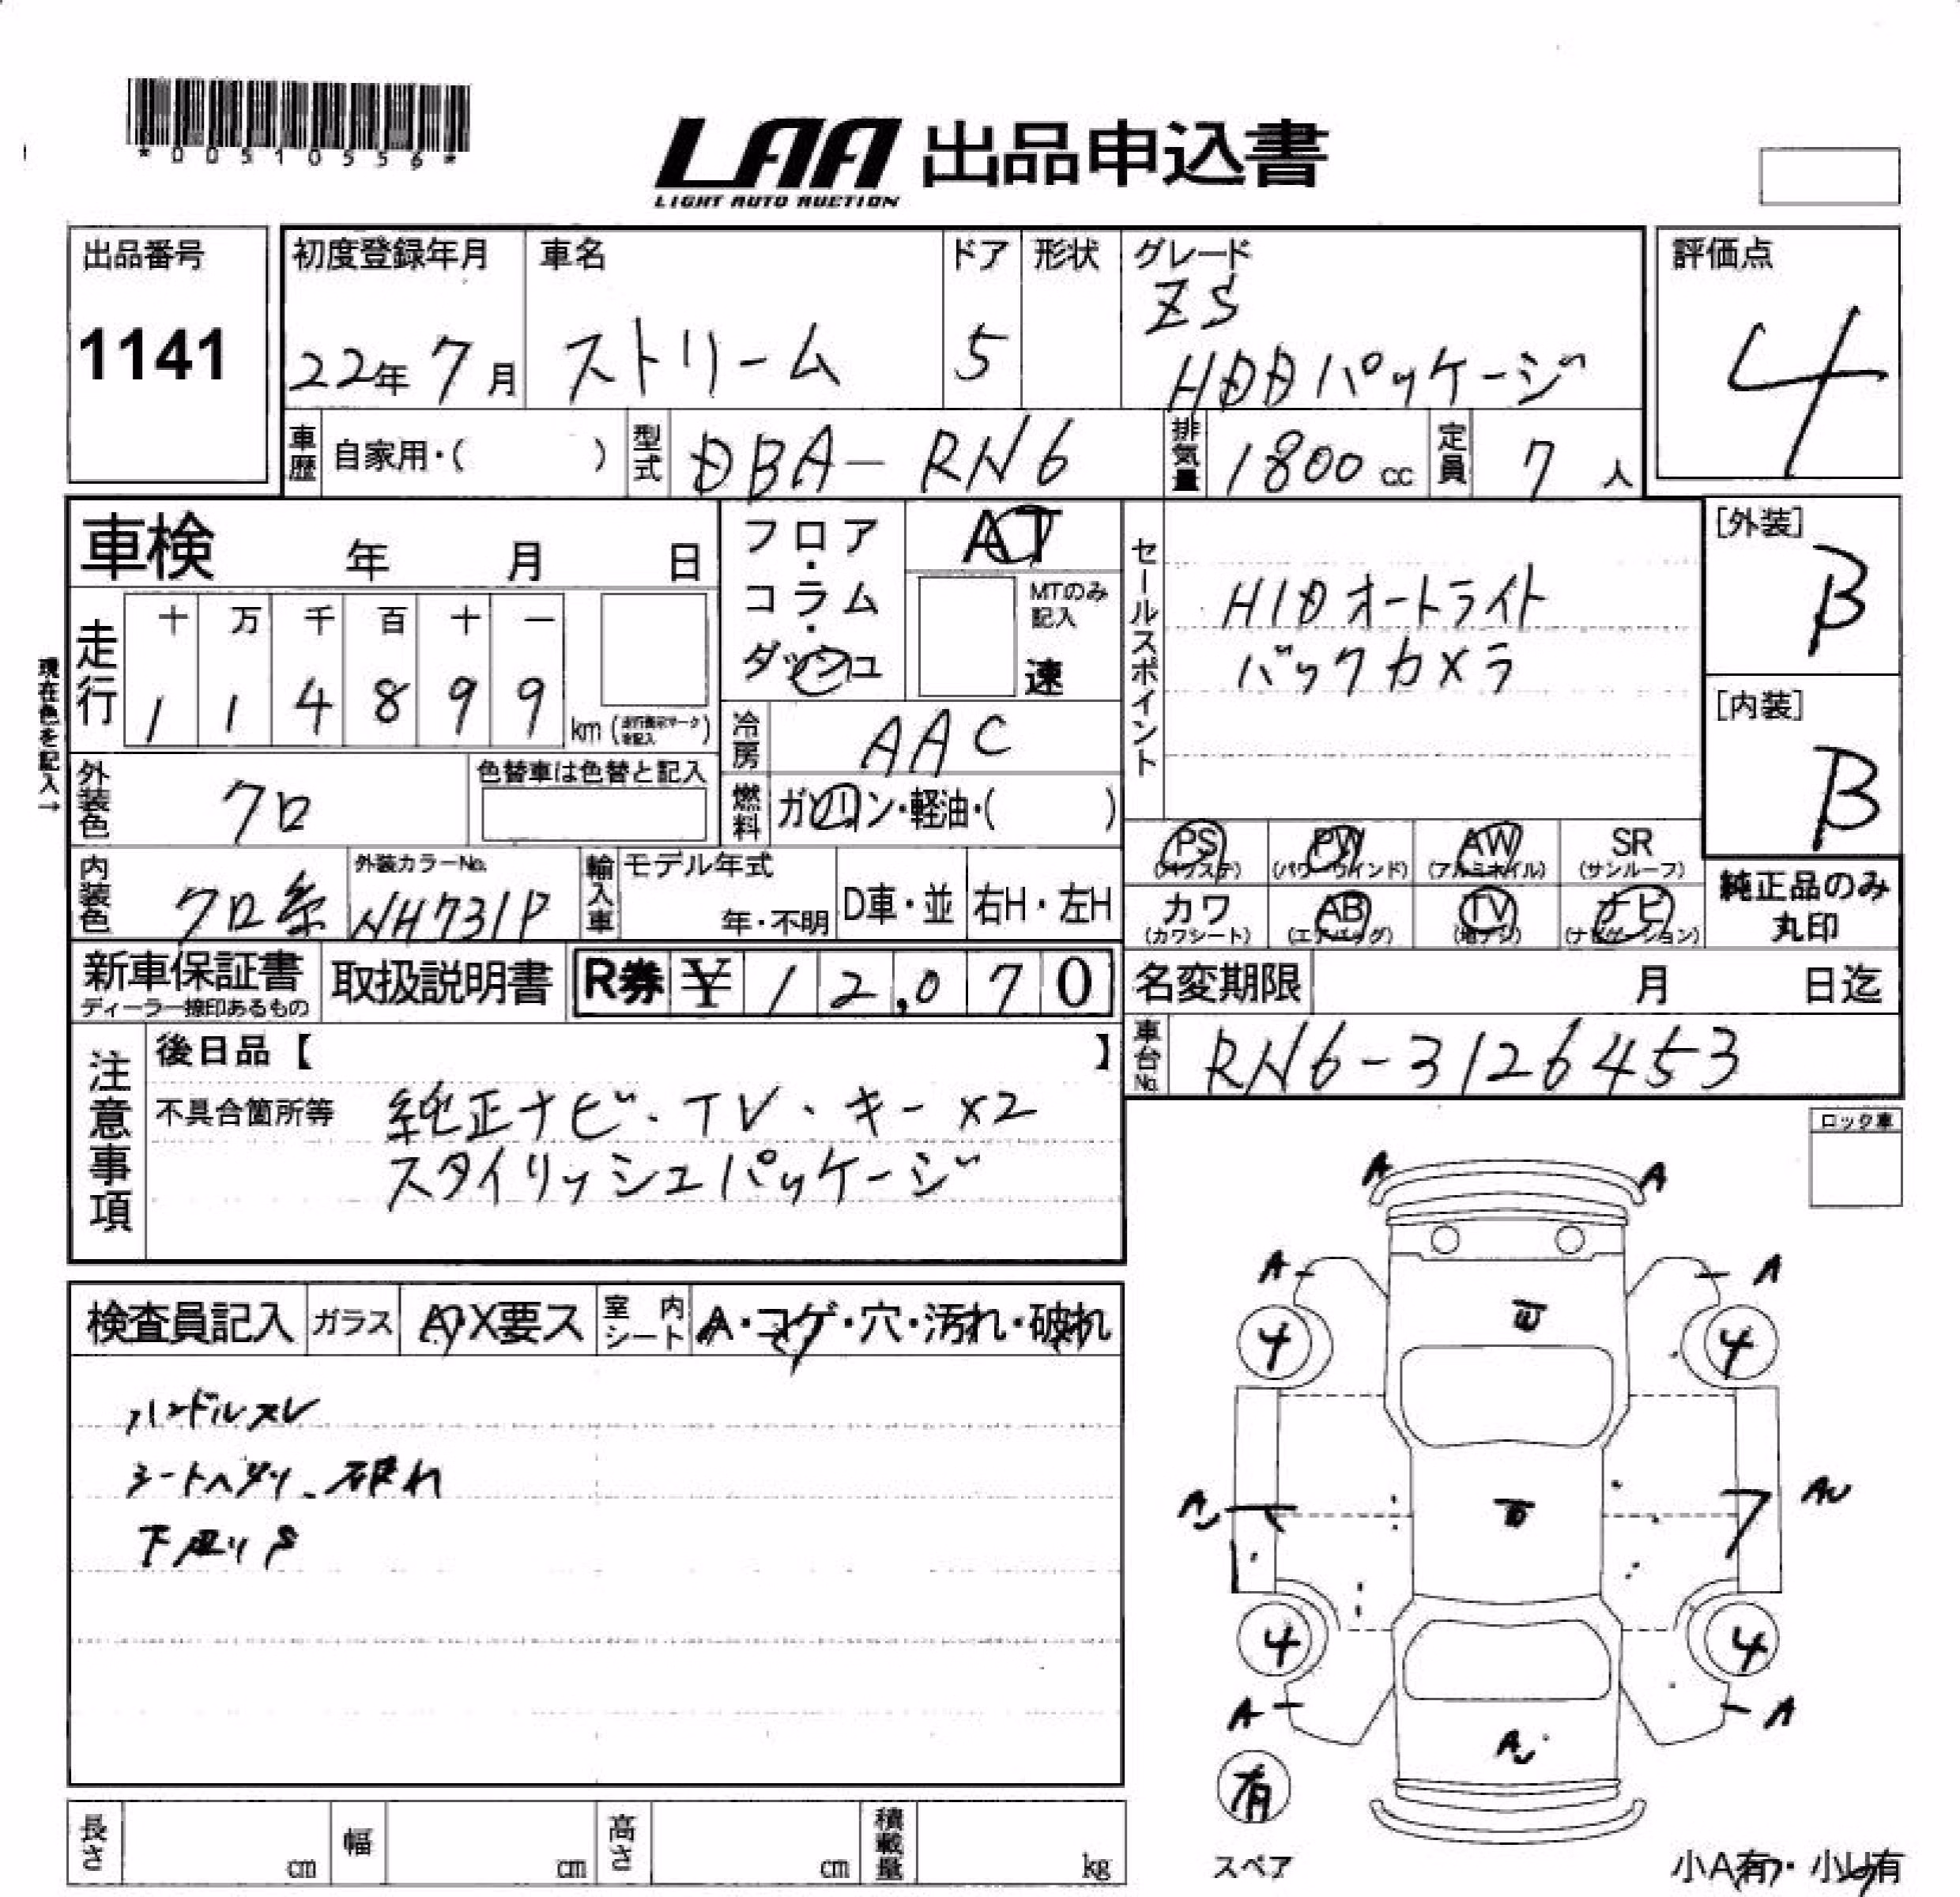 *00510556*
LAA 出品申込書
LIGHT AUTO AUCTION
出品番号
1141
初度登録年月
22年 7月
車名
ストリーム
ドア
5
形状
グレード
ZS
HDDパッケージ
評価点
4
車歴 自家用・( )
型式 DBA-RN6
排気量 1800 cc
定員 7 人
車検 年 月 日
走行
十 万 千 百 十 一
1 1 4 8 9 9
km (走行表示マーク を記入)
現在色を記入→
外装色 クロ
色替車は色替と記入
内装色 クロ系
外装カラーNo.
NH731P
フロア・コラム・ダッシュ
AT
MTのみ記入
速
冷房 AAC
燃料 ガソリン・軽油・( )
輸入車
モデル年式
年・不明
D車・並
右H・左H
セールスポイント
HIDオートライト
バックカメラ
[外装]
B
[内装]
B
PS (パワステ)
PW (パワーウインド)
AW (アルミホイル)
SR (サンルーフ)
カワ (カワシート)
AB (エアバッグ)
TV (地デジ)
ナビ (ナビゲーション)
純正品のみ
丸印
新車保証書
ディーラー捺印あるもの
取扱説明書
R券 ¥ 12,070
名変期限 月 日迄
車台No. RN6-3126453
注意事項
後日品【 】
不具合箇所等 純正ナビ・TV・キー×2
スタイリッシュパッケージ
ロック車
検査員記入
ガラス A X要ス
室内シート A・コゲ・穴・汚れ・破れ
ハンドルスレ
シートヘタリ、破れ
下廻りS
A A
A A
4 4
AU AU
4 4
A A
AU
有
スペア
小A有・小U有
長さ cm
幅 cm
高さ cm
積載量 kg